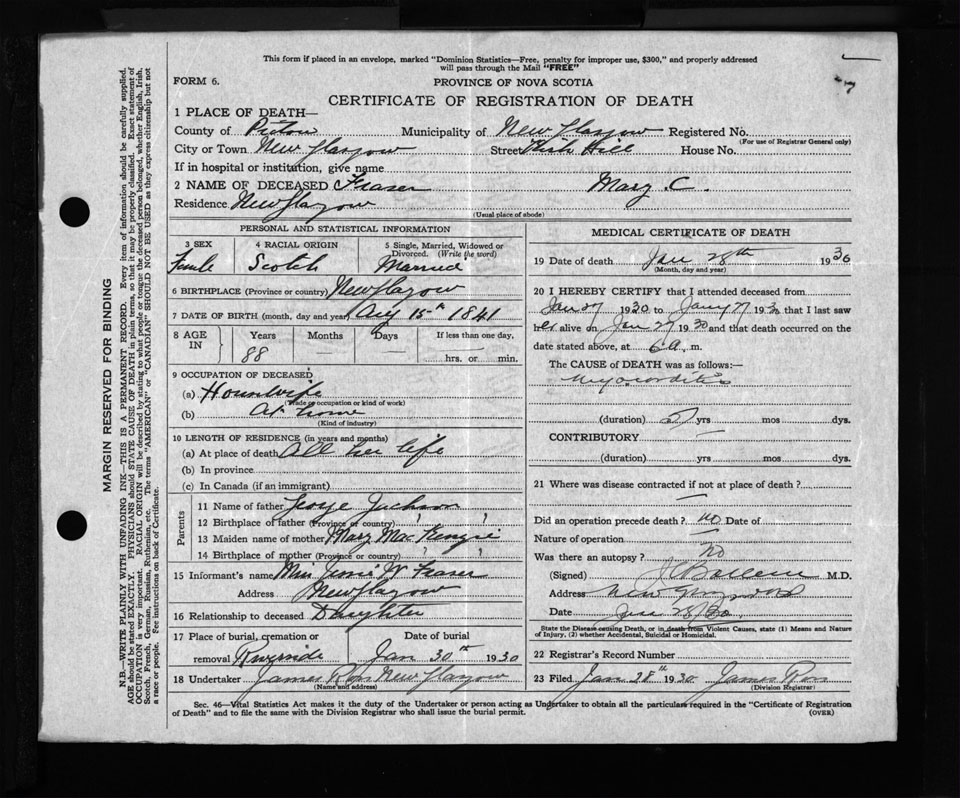 This form if placed in an envelope, marked "Dominion Statistics—Free, penalty for improper use, $300," and properly addressed
will pass through the Mail "FREE"
FORM 6.
PROVINCE OF NOVA SCOTIA
7
CERTIFICATE OF REGISTRATION OF DEATH
1 PLACE OF DEATH—
County of Pictou Municipality of New Glasgow Registered No.
(For use of Registrar General only)
City or Town New Glasgow Street Hill House No.
If in hospital or institution, give name
2 NAME OF DECEASED Fraser Mary C.
Residence New Glasgow
(Usual place of abode)
PERSONAL AND STATISTICAL INFORMATION
3 SEX 4 RACIAL ORIGIN 5 Single, Married, Widowed or
Divorced. (Write the word)
Female Scotch Married
6 BIRTHPLACE (Province or country) New Glasgow
7 DATE OF BIRTH (month, day and year) Aug 15th 1841
8 AGE IN Years Months Days If less than one day,
88 — — — hrs. or min.
9 OCCUPATION OF DECEASED
(a) Housewife
(Trade or occupation or kind of work)
(b) At home
(Kind of industry)
10 LENGTH OF RESIDENCE (in years and months)
(a) At place of death All her life
(b) In province
(c) In Canada (if an immigrant)
Parents
11 Name of father George Jackson
12 Birthplace of father (Province or country) " "
13 Maiden name of mother Mary MacKenzie
14 Birthplace of mother (Province or country) " "
15 Informant's name Miss Jessie W Fraser
Address New Glasgow
16 Relationship to deceased Daughter
17 Place of burial, cremation or Date of burial
removal Riverside Jan 30th 1930
18 Undertaker James Ross New Glasgow
(Name and address)
MEDICAL CERTIFICATE OF DEATH
19 Date of death Jan 28th 1936
(Month, day and year)
20 I HEREBY CERTIFY that I attended deceased from
Jan 27 1930 to Jany 27 1930 that I last saw
her alive on Jan 27 1930 and that death occurred on the
date stated above, at 6 a. m.
The CAUSE OF DEATH was as follows:—
Myocarditis
(duration) 2 yrs mos dys.
CONTRIBUTORY —
(duration) yrs mos dys.
21 Where was disease contracted if not at place of death?
—
Did an operation precede death? no Date of
Nature of operation —
Was there an autopsy? No
(Signed) M.D.
Address New Glasgow
Date Jan 28/30
State the Disease causing Death, or in death from Violent Causes, state (1) Means and Nature
of Injury, (2) whether Accidental, Suicidal or Homicidal.
22 Registrar's Record Number
23 Filed Jan 28th 1930 James Ross
(Division Registrar)
Sec. 46—Vital Statistics Act makes it the duty of the Undertaker or person acting as Undertaker to obtain all the particulars required in the "Certificate of Registration
of Death" and to file the same with the Division Registrar who shall issue the burial permit.
(OVER)
MARGIN RESERVED FOR BINDING
N.B.—WRITE PLAINLY WITH UNFADING INK—THIS IS A PERMANENT RECORD. Every item of information should be carefully supplied.
AGE should be stated EXACTLY. PHYSICIANS should STATE CAUSE OF DEATH in plain terms, so that it may be properly classified. Exact statement of
OCCUPATION is very important. RACIAL ORIGIN will be described by stating to what people or tongue the deceased person belonged, whether English, Irish,
Scotch, French, German, Russian, Ruthenian, etc. The terms "AMERICAN" or "CANADIAN" SHOULD NOT BE USED as they express citizenship but not
a race or people. Fee instructions on back of Certificate.